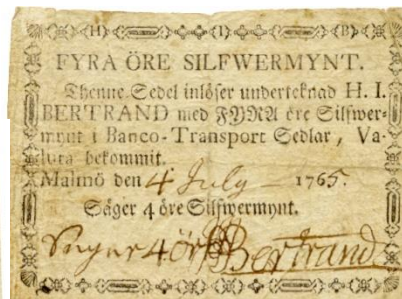 H I B
FYRA ÖRE SILFWERMYNT.
Thenne Sedel inlöser underteknad H. I.
BERTRAND med FYRA öre Silfwer=
mynt i Banco-Transport Sedlar, Va-
luta bekommit.
Malmö den 4 July 1765.
Säger 4 öre Silfwermynt.
Säger 4 ör HIBertrand